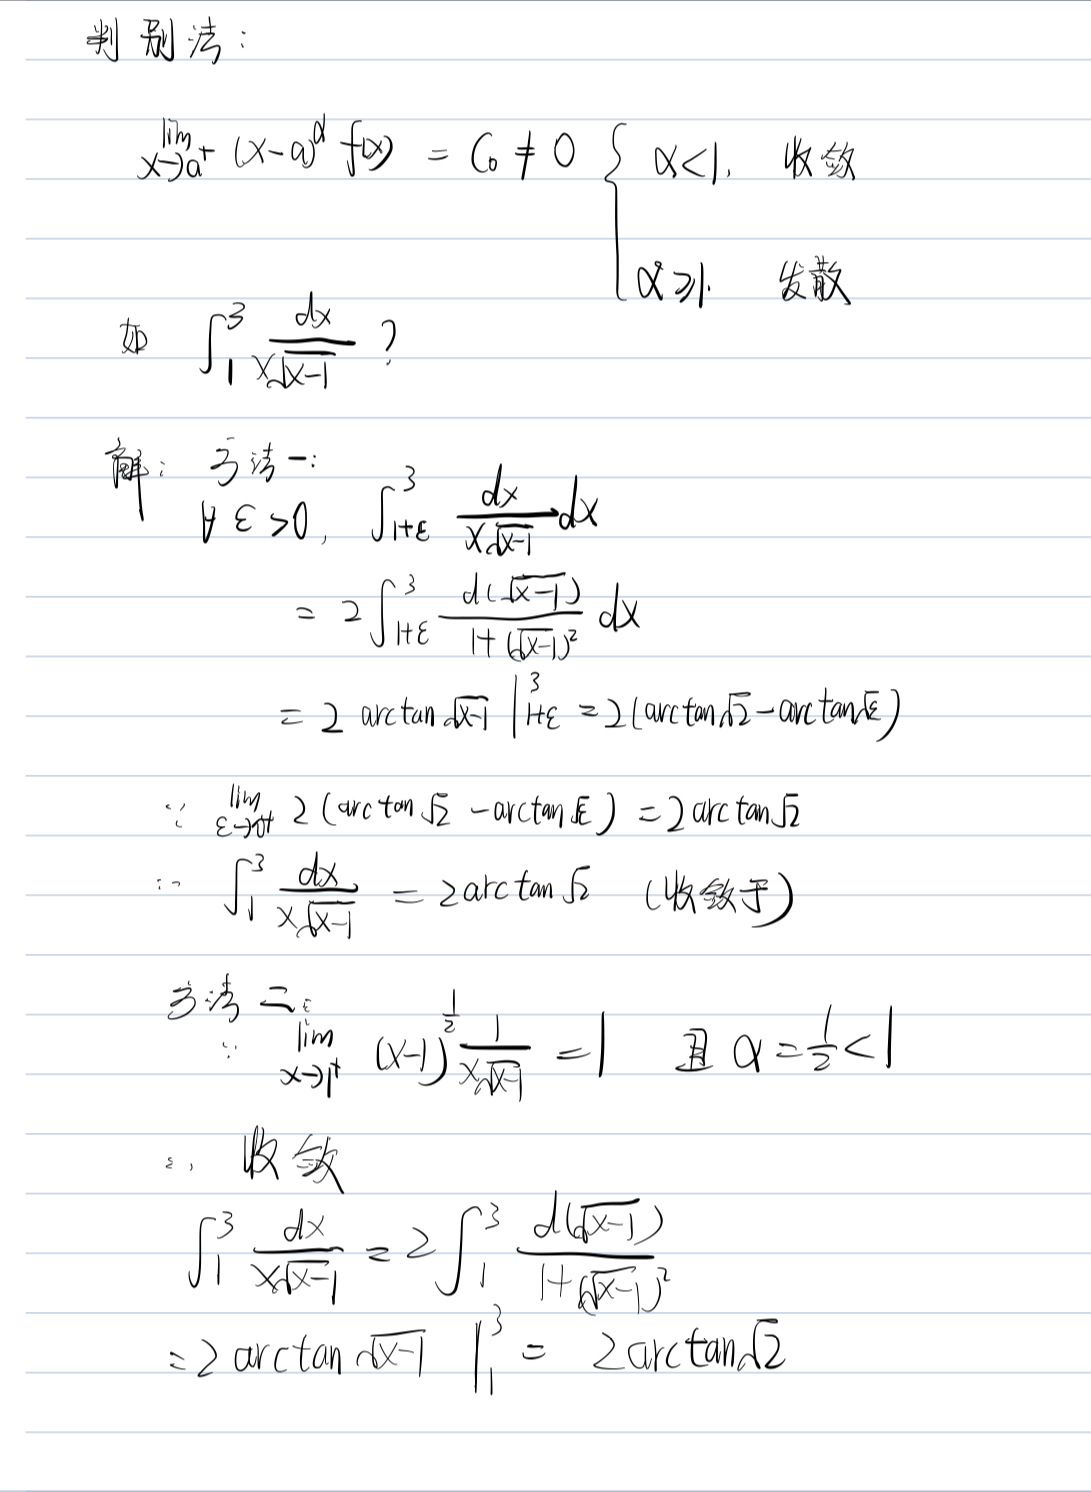 判别法:
lim x→a⁺ (x-a)^α f(x) = C₀ ≠ 0 { α<1, 收敛
α≥1. 发散
如 ∫₁³ dx/(x√(x-1)) ?
解: 方法一:
∀ ε>0, ∫_{1+ε}^{3} dx/(x√(x-1)) dx
= 2∫_{1+ε}^{3} d(√(x-1))/(1+(√(x-1))²) dx
= 2 arctan√(x-1) |_{1+ε}^{3} = 2(arctan√2 - arctan√ε)
∵ lim ε→0⁺ 2(arctan√2 - arctan√ε) = 2arctan√2
∴ ∫₁³ dx/(x√(x-1)) = 2arctan√2 (收敛于)
方法二:
∵ lim x→1⁺ (x-1)^{1/2} 1/(x√(x-1)) = 1 且 α = 1/2 < 1
∴ 收敛
∫₁³ dx/(x√(x-1)) = 2∫₁³ d(√(x-1))/(1+(√(x-1))²)
= 2arctan√(x-1) |₁³ = 2arctan√2